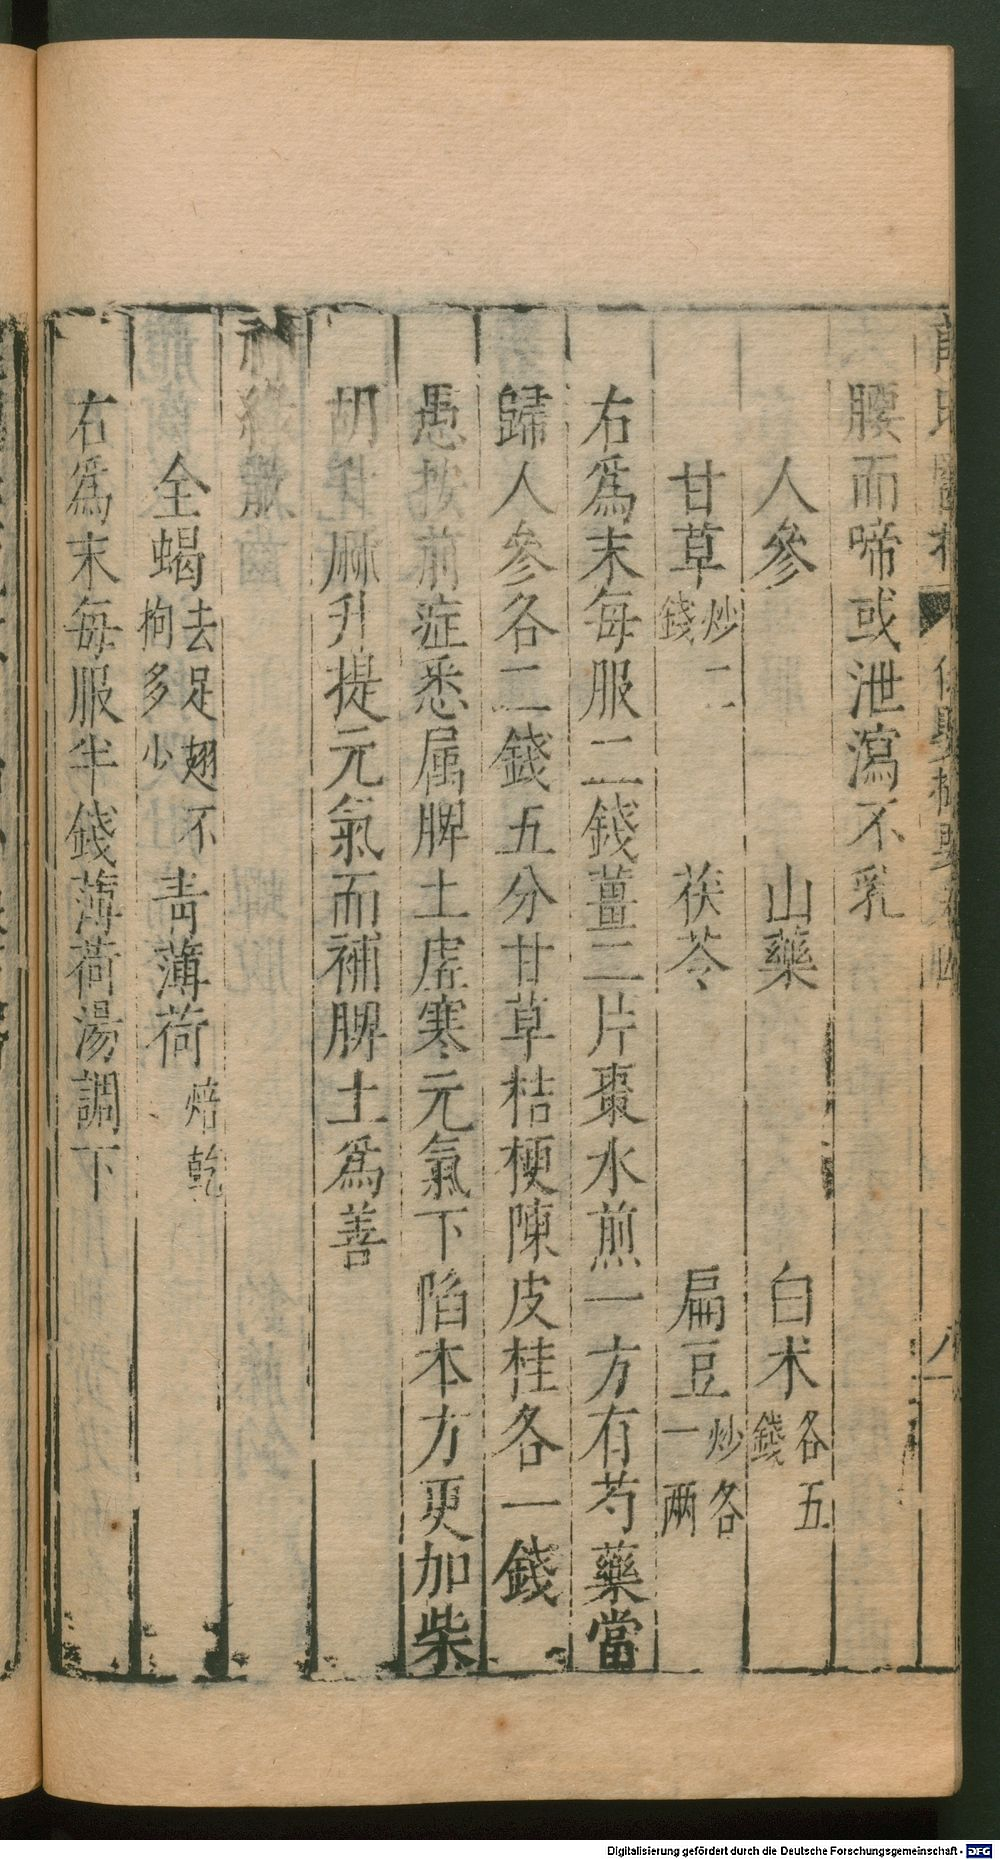 腰而啼或泄瀉不乳
人參 山藥 白朮各五錢
甘草炒二錢 茯苓 扁豆炒各一兩
右爲末每服二錢薑二片棗水煎一方有芍藥當
歸人參各二錢五分甘草桔梗陳皮桂各一錢
愚按前症悉属脾土虛寒元氣下陷本方更加柴
胡升麻升提元氣而補脾土爲善
全蝎去足翅不拘多少 青薄荷焙乾
右爲末每服半錢薄荷湯調下
Digitalisierung gefördert durch die Deutsche Forschungsgemeinschaft - DFG